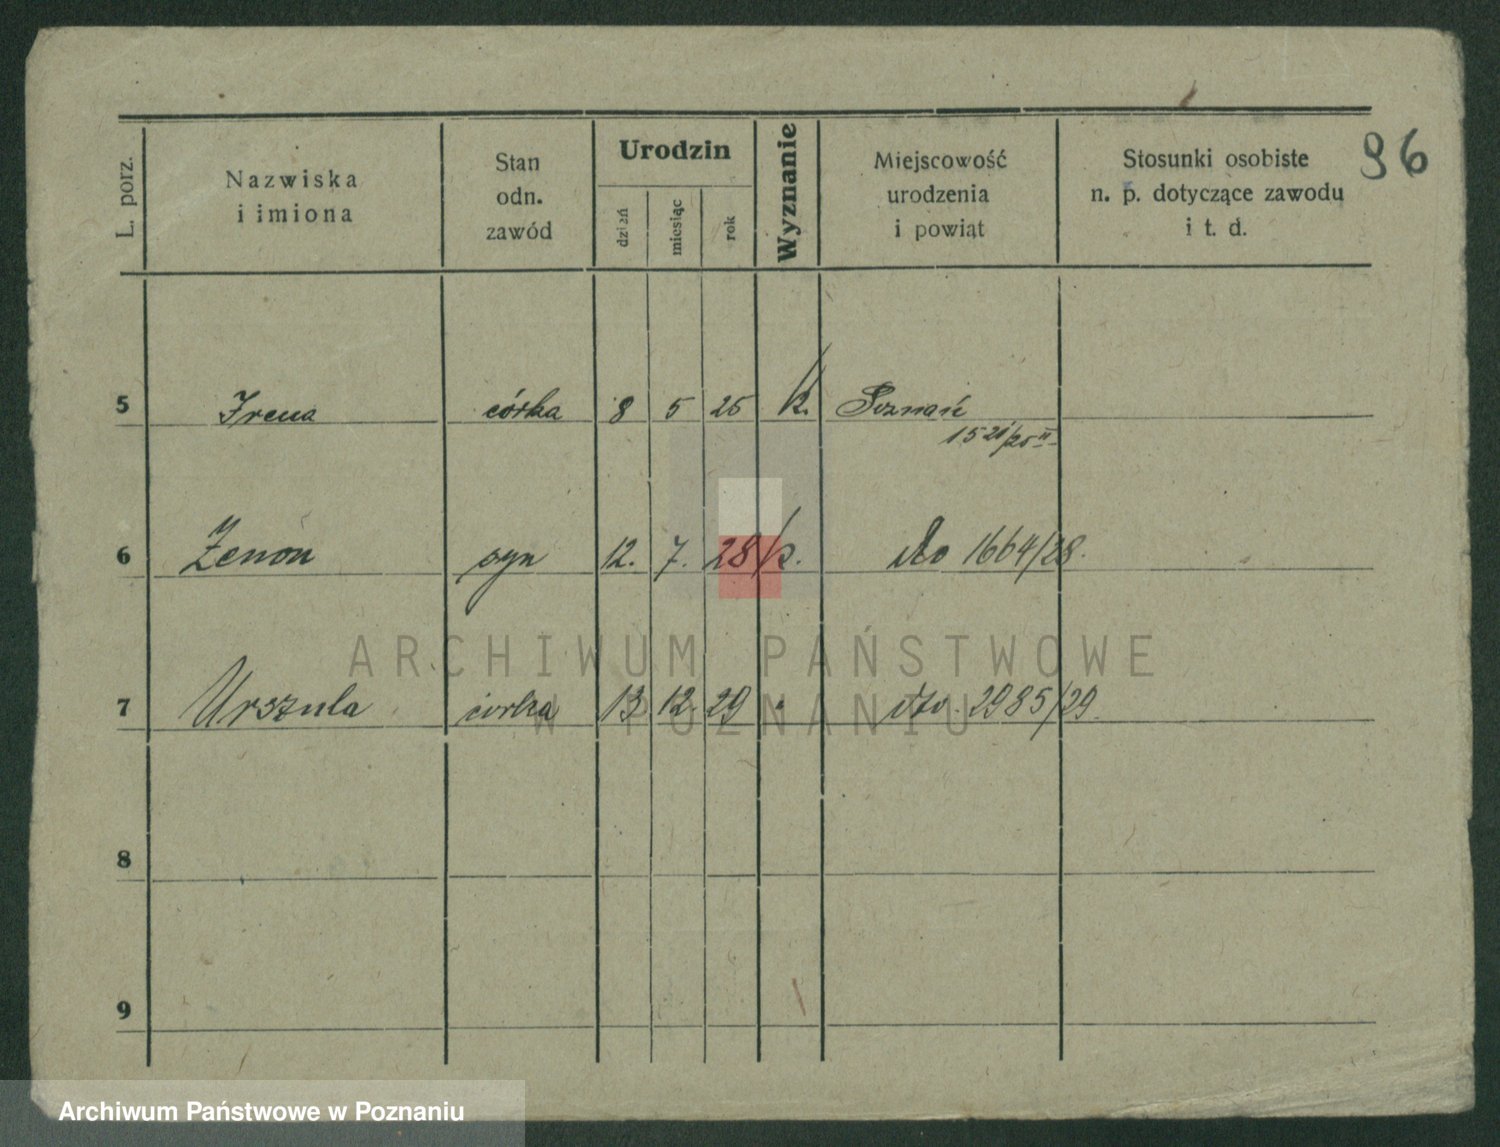 96
L. porz.
Nazwiska
i imiona
Stan
odn.
zawód
Urodzin
dzień
miesiąc
rok
Wyznanie
Miejscowość
urodzenia
i powiąt
Stosunki osobiste
n. p. dotyczące zawodu
i t. d.
5 Irena córka 8 5 25 k. Poznań
6 Zenon syn 12. 7. 28 k. dto 1664/28.
7 Urszula córka 13 12. 29 dto. 2985/29.
8
9
ARCHIWUM PAŃSTWOWE
W POZNANIU
Archiwum Państwowe w Poznaniu